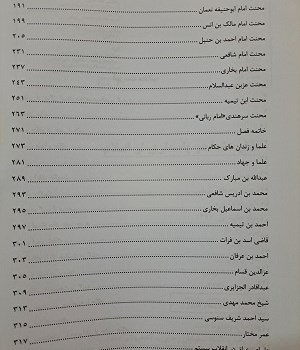 محنت امام ابوحنیفه نعمان ۱۹۱
محنت امام مالک بن انس ۱۹۹
محنت امام احمد بن حنبل ۲۰۵
محنت امام شافعی ۲۳۱
محنت امام بخاری ۲۳۷
محنت عزبن عبدالسلام ۲۴۳
محنت ابن تیمیه ۲۵۱
محنت سرهندی «امام ربانی» ۲۶۳
خاتمه فصل ۲۷۱
علما و زندان های حکام ۲۷۳
علما و جهاد ۲۸۱
عبدالله بن مبارک ۲۸۹
محمد بن ادریس شافعی ۲۹۳
محمد بن اسماعیل بخاری ۲۹۵
احمد بن تیمیه ۲۹۷
قاضی اسد بن فرات ۳۰۱
احمد بن عرفان ۳۰۳
عزالدین قسام ۳۰۵
عبدالقادر الجزایری ۳۰۹
شیخ محمد مهدی ۳۱۳
سید احمد شریف سنوسی ۳۱۵
عمر مختار ۳۱۷